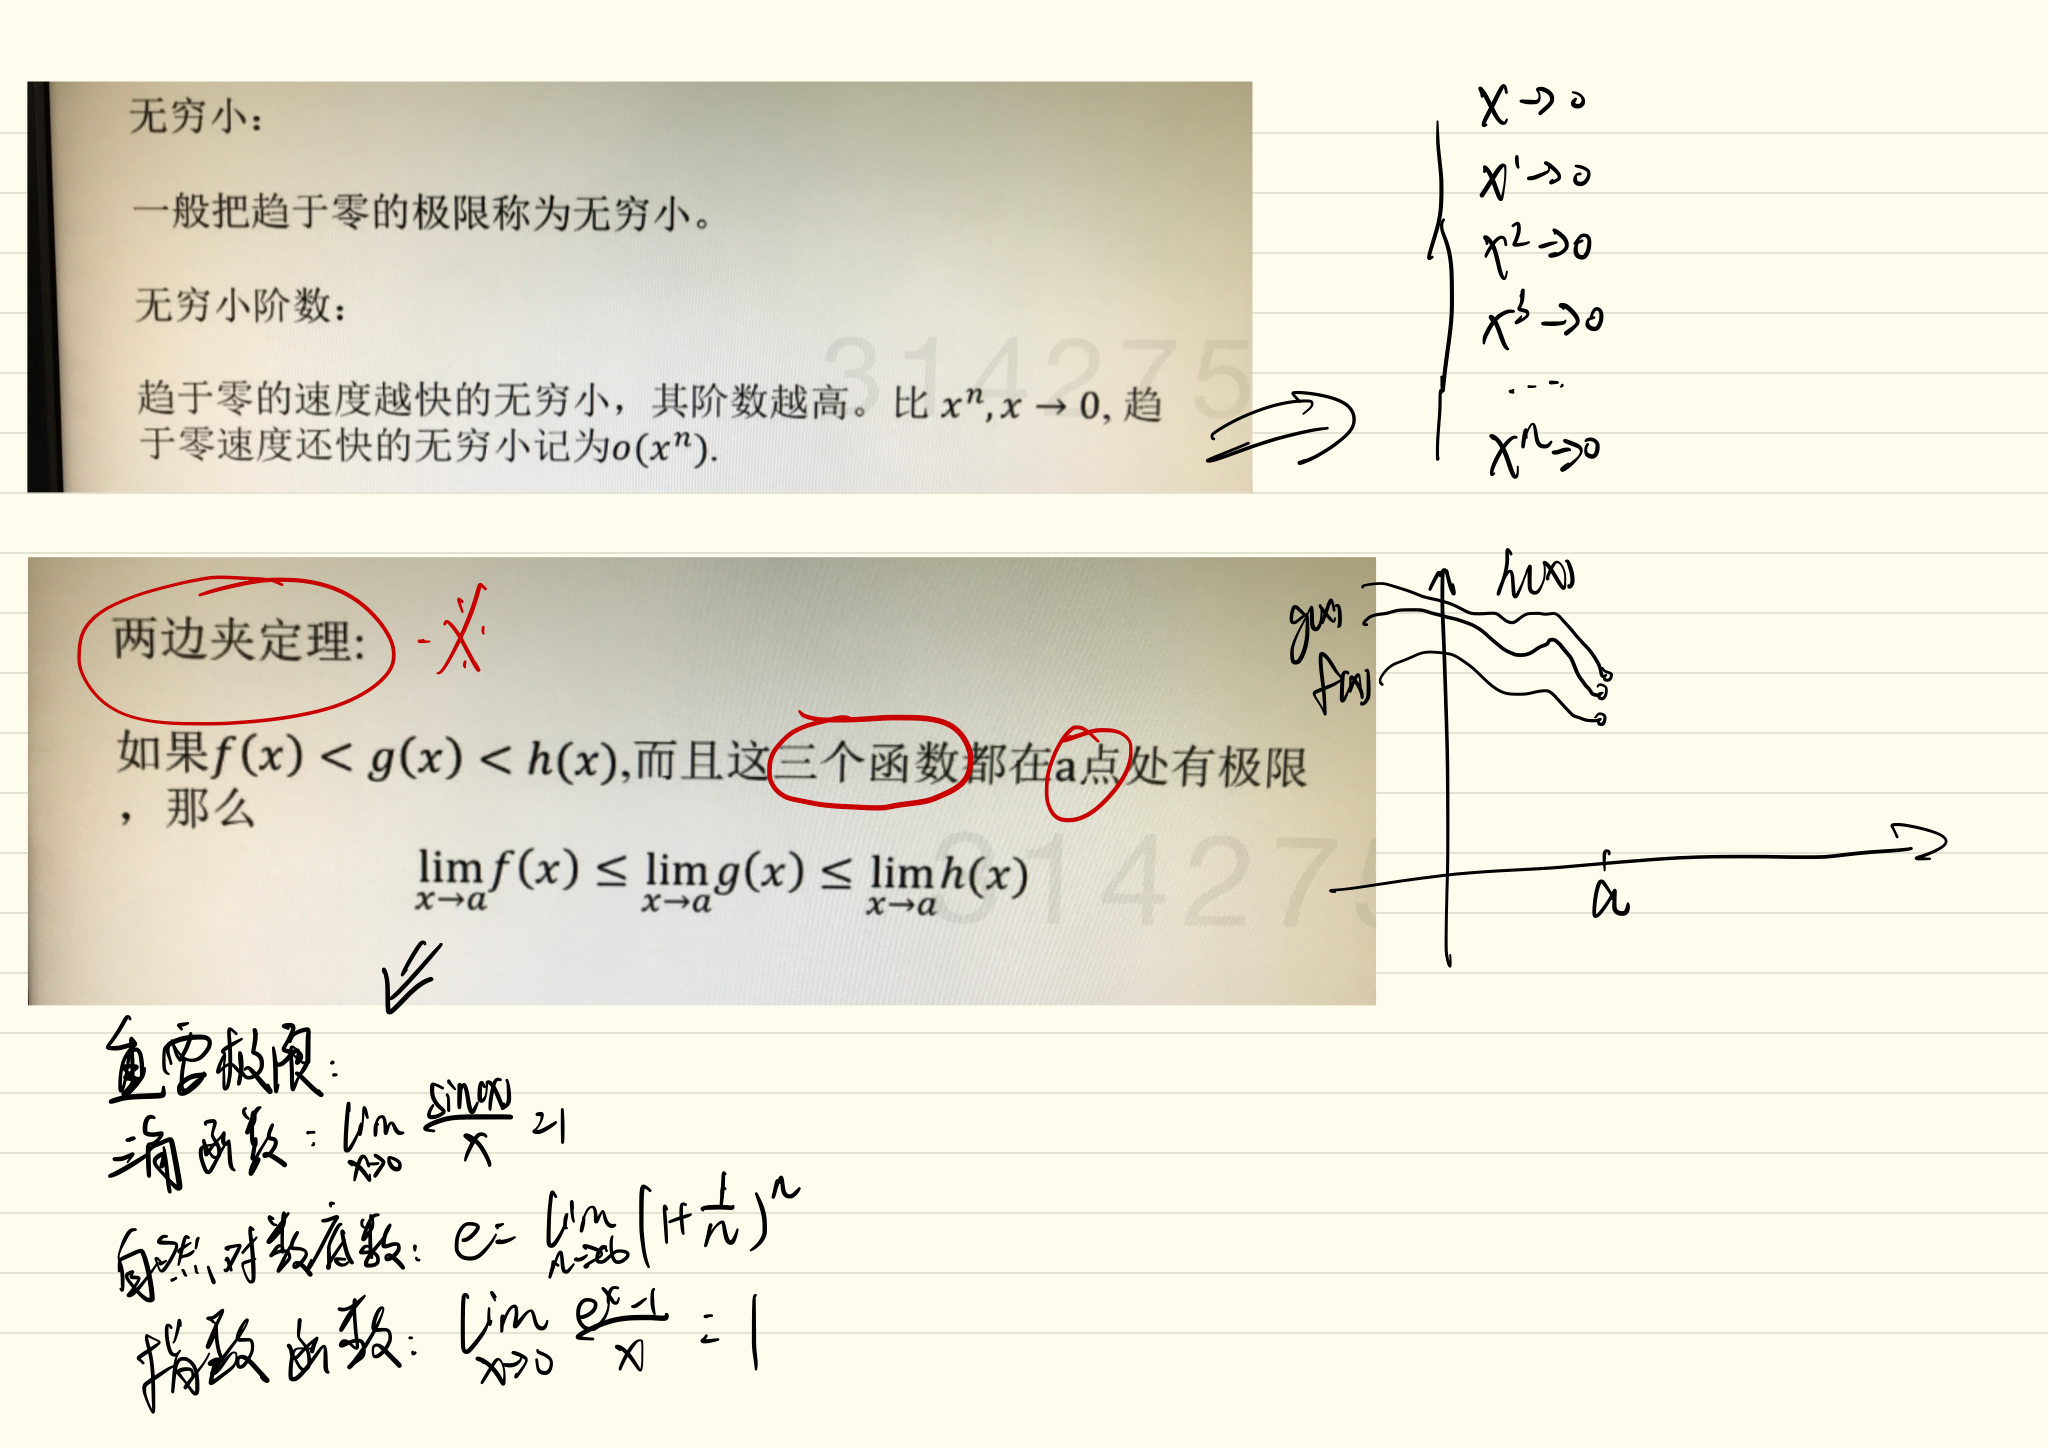 无穷小：
一般把趋于零的极限称为无穷小。
无穷小阶数：
趋于零的速度越快的无穷小，其阶数越高。比 xⁿ, x → 0, 趋
于零速度还快的无穷小记为o(xⁿ).
314275
x → 0
x¹ → 0
x² → 0
x³ → 0
....
xⁿ → 0
两边夹定理:
如果f(x) < g(x) < h(x),而且这三个函数都在a点处有极限
，那么
lim x→a f(x) ≤ lim x→a g(x) ≤ lim x→a h(x)
314275
h(x)
g(x)
f(x)
a
重要极限：
三角函数：lim x→0 sin(x)/x = 1
自然对数底数：e = lim n→∞ (1+1/n)ⁿ
指数函数：lim x→0 (eˣ-1)/x = 1